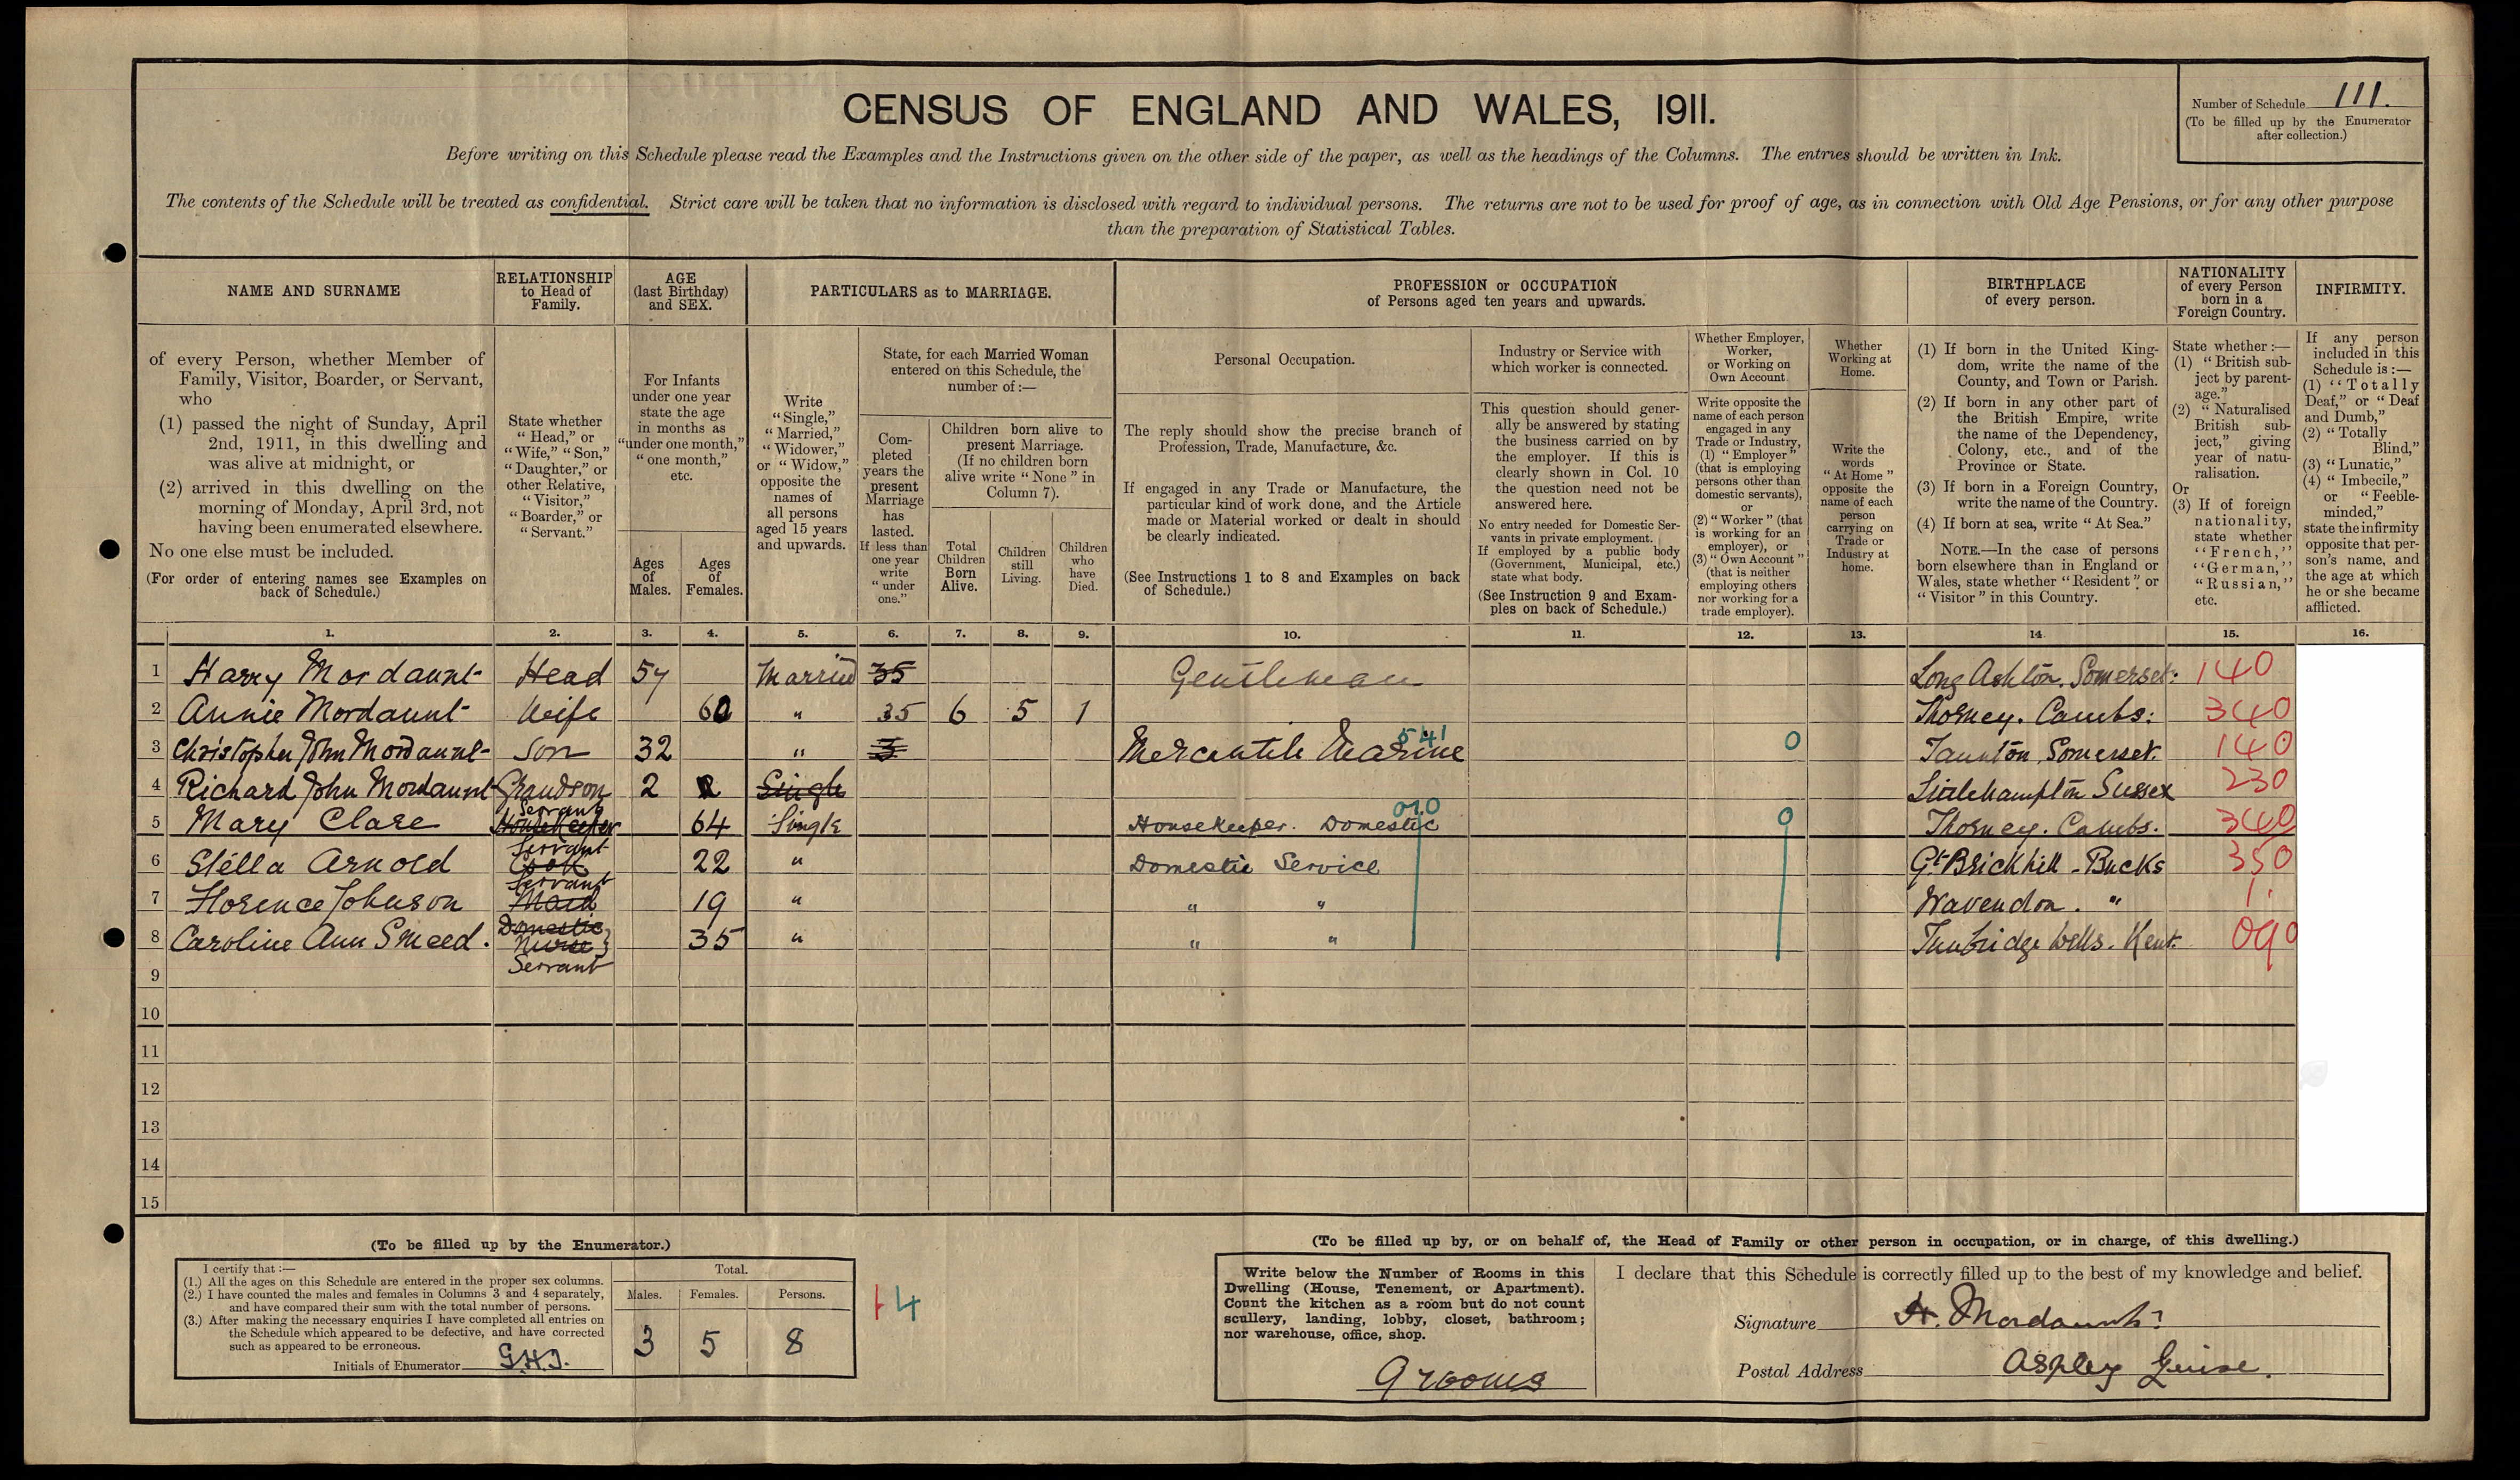 CENSUS OF ENGLAND AND WALES, 1911.
Number of Schedule 111.
(To be filled up by the Enumerator
after collection.)
Before writing on this Schedule please read the Examples and the Instructions given on the other side of the paper, as well as the headings of the Columns. The entries should be written in Ink.
The contents of the Schedule will be treated as confidential. Strict care will be taken that no information is disclosed with regard to individual persons. The returns are not to be used for proof of age, as in connection with Old Age Pensions, or for any other purpose
than the preparation of Statistical Tables.
NAME AND SURNAME
of every Person, whether Member of
Family, Visitor, Boarder, or Servant,
who
(1) passed the night of Sunday, April
2nd, 1911, in this dwelling and
was alive at midnight, or
(2) arrived in this dwelling on the
morning of Monday, April 3rd, not
having been enumerated elsewhere.
No one else must be included.
(For order of entering names see Examples on
back of Schedule.)
RELATIONSHIP
to Head of
Family.
State whether
"Head," or
"Wife," "Son,"
"Daughter," or
other Relative,
"Visitor,"
"Boarder," or
"Servant."
AGE
(last Birthday)
and SEX.
For Infants
under one year
state the age
in months as
"under one month,"
"one month,"
etc.
Ages
of
Males.
Ages
of
Females.
PARTICULARS as to MARRIAGE.
Write
"Single,"
"Married,"
"Widower,"
or "Widow,"
opposite the
names of
all persons
aged 15 years
and upwards.
State, for each Married Woman
entered on this Schedule, the
number of:—
Com-
pleted
years the
present
Marriage
has
lasted.
If less than
one year
write
"under
one."
Children born alive to
present Marriage.
(If no children born
alive write "None" in
Column 7).
Total
Children
Born
Alive.
Children
still
Living.
Children
who
have
Died.
PROFESSION or OCCUPATION
of Persons aged ten years and upwards.
Personal Occupation.
The reply should show the precise branch of
Profession, Trade, Manufacture, &c.
If engaged in any Trade or Manufacture, the
particular kind of work done, and the Article
made or Material worked or dealt in should
be clearly indicated.
(See Instructions 1 to 8 and Examples on back
of Schedule.)
Industry or Service with
which worker is connected.
This question should gener-
ally be answered by stating
the business carried on by
the employer. If this is
clearly shown in Col. 10
the question need not be
answered here.
No entry needed for Domestic Ser-
vants in private employment.
If employed by a public body
(Government, Municipal, etc.)
state what body.
(See Instruction 9 and Exam-
ples on back of Schedule.)
Whether Employer,
Worker,
or Working on
Own Account
Write opposite the
name of each person
engaged in any
Trade or Industry,
(1) "Employer"
(that is employing
persons other than
domestic servants),
or
(2) "Worker" (that
is working for an
employer), or
(3) "Own Account"
(that is neither
employing others
nor working for a
trade employer).
Whether
Working at
Home.
Write the
words
"At Home"
opposite the
name of each
person
carrying on
Trade or
Industry at
home.
BIRTHPLACE
of every person.
(1) If born in the United King-
dom, write the name of the
County, and Town or Parish.
(2) If born in any other part of
the British Empire, write
the name of the Dependency,
Colony, etc., and of the
Province or State.
(3) If born in a Foreign Country,
write the name of the Country.
(4) If born at sea, write "At Sea."
NOTE.—In the case of persons
born elsewhere than in England or
Wales, state whether "Resident" or
"Visitor" in this Country.
NATIONALITY
of every Person
born in a
Foreign Country.
State whether:—
(1) "British sub-
ject by parent-
age."
(2) "Naturalised
British sub-
ject," giving
year of natu-
ralisation.
Or
(3) If of foreign
nationality,
state whether
"French,"
"German,"
"Russian,"
etc.
INFIRMITY.
If any person
included in this
Schedule is:—
(1) "Totally
Deaf," or "Deaf
and Dumb,"
(2) "Totally
Blind,"
(3) "Lunatic,"
(4) "Imbecile,"
or "Feeble-
minded,"
state the infirmity
opposite that per-
son's name, and
the age at which
he or she became
afflicted.
1. 2. 3. 4. 5. 6. 7. 8. 9. 10. 11. 12. 13. 14. 15. 16.
1 Harry Mordaunt Head 57 Married 35 Gentleman Long Ashton. Somerset. 140
2 Annie Mordaunt Wife 60 " 35 6 5 1 Thorney. Cambs: 340
3 Christopher John Mordaunt Son 32 " 3 Mercantile Marine 541 0 Taunton Somerset. 140
4 Richard John Mordaunt Grandson 2 Single Littlehampton Sussex 230
5 Mary Clare Housekeeper Servant 64 Single Housekeeper. Domestic 010 0 Thorney. Cambs. 340
6 Stella Arnold Cook Servant 22 " Domestic Service Gt Brickhill - Bucks 350
7 Florence Johnson Maid Servant 19 " " " Wavendon. " 1
8 Caroline Ann Smeed. Domestic Nurse Servant 35 " " " Tunbridge Wells. Kent. 090
9
10
11
12
13
14
15
(To be filled up by the Enumerator.)
I certify that:—
(1.) All the ages on this Schedule are entered in the proper sex columns.
(2.) I have counted the males and females in Columns 3 and 4 separately,
and have compared their sum with the total number of persons.
(3.) After making the necessary enquiries I have completed all entries on
the Schedule which appeared to be defective, and have corrected
such as appeared to be erroneous.
Initials of Enumerator
Total.
Males. Females. Persons.
3 5 8
14
(To be filled up by, or on behalf of, the Head of Family or other person in occupation, or in charge, of this dwelling.)
Write below the Number of Rooms in this
Dwelling (House, Tenement, or Apartment).
Count the kitchen as a room but do not count
scullery, landing, lobby, closet, bathroom;
nor warehouse, office, shop.
9 rooms
I declare that this Schedule is correctly filled up to the best of my knowledge and belief.
Signature H. Mordaunt
Postal Address Aspley Guise.